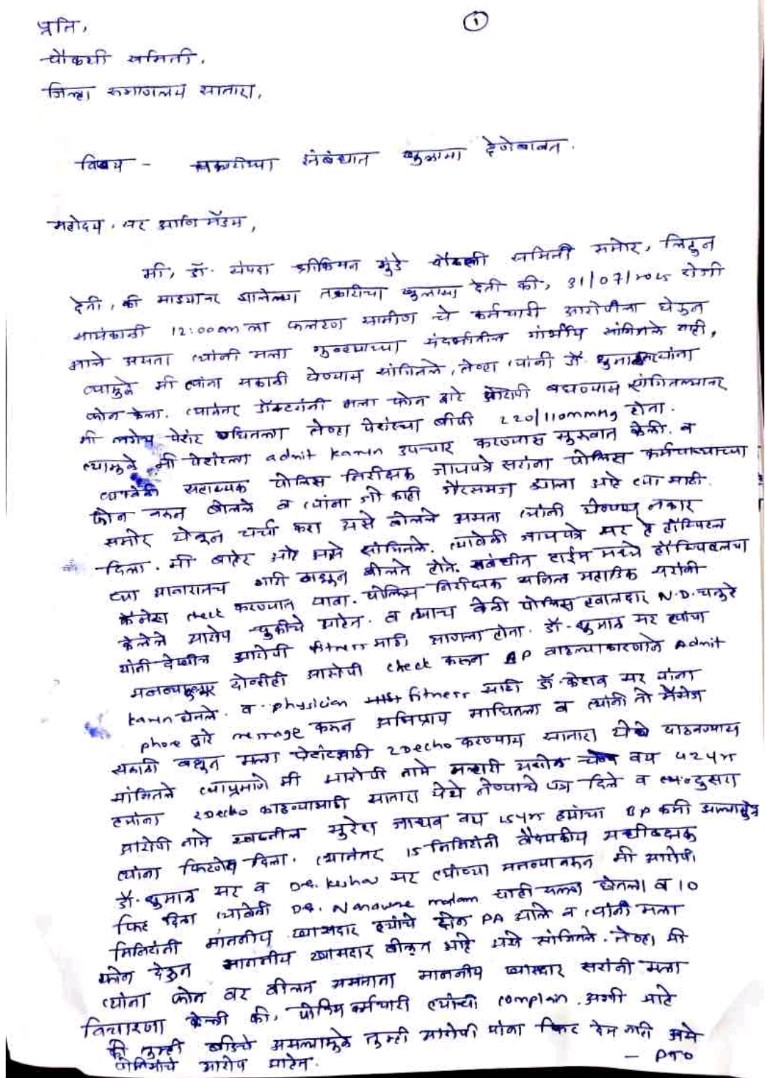 ①
प्रति,
चौकशी समिती,
जिल्हा रुग्णालय सातारा,
विषय - तक्रारीच्या संबंधात खुलासा देणेबाबत.
महोदय, सर आणि मॅडम,
मी, डॉ. संपदा श्रीकिसन मुंडे चौकशी समिती समोर, लिहून
देती, की माझ्यावर झालेल्या तक्रारीचा खुलासा देती की, 31/07/2025 रोजी
सायंकाळी 12:00am ला फलटण ग्रामीण चे कर्मचारी आरोपीला घेऊन
आले असता त्यांनी मला गुन्ह्याच्या संदर्भातील गांभीर्य सांगितले नाही,
त्यामुळे मी त्यांना सकाळी येण्यास सांगितले, तेव्हा त्यांनी डॉ. धुमाळ यांना
फोन केला. त्यानंतर डॉक्टरांनी मला फोन द्वारे आरोपी बघण्यास सांगितल्यावर
मी लगेच पेशंट बघितला तेव्हा पेशंटचा बीपी 220/110mmHg होता.
त्यामुळे मी पेशंटला admit करून उपचार करण्यास सुरुवात केली. व
त्यावेळी सहाय्यक पोलिस निरीक्षक जायपत्रे सरांना पोलिस कर्मचाऱ्याच्या
फोन वरून बोलले व त्यांना जी काही गैरसमज झाला आहे त्या साठी
समोर येऊन चर्चा करा असे बोलले असता त्यांनी येण्यास नकार
दिला. मी बाहेर आहे असे सांगितले. त्यावेळी जायपत्रे सर हे हॉस्पिटल
च्या आवारातच गाडी काढून बोलत होते. संबंधीत टाईम मध्ये हॉस्पिटलचा
कॅमेरा check करण्यात यावा. पोलिस निरीक्षक अनिल महाडिक सरांनी
केलेले आरोप चुकीचे आहेत. व त्याच वेळी पोलिस हवालदार N.D. चतुरे
यांनी देखील आरोपी fitness साठी आणला होता. डॉ. धुमाळ सर यांच्या
मतव्यानुसार दोन्हीही आरोपी check करून BP वाढल्याकारणाने Admit
करून घेतले. व physician fitness साठी डॉ. केशव सर यांना
phone द्वारे message करून अभिप्राय मागितला व त्यांनी तो मॅसेज
सकाळी बघून मला पेशंटसाठी 2Decho करण्यास सातारा येथे पाठवण्यास
सांगितले त्याप्रमाणे मी आरोपी नामे वय 42yr
त्यांना 2Decho काढण्यासाठी सातारा येथे नेण्याचे पत्र दिले व दुसरा
आरोपी नामे स्वप्नील सुरेश जाधव वय yr ह्यांचा BP कमी आल्यामुळे
त्यांना फिटनेस दिला. त्यानंतर 15 मिनिटांनी वैद्यकीय अधीक्षक
डॉ. धुमाळ सर व DR. Keshav सर त्यांच्या मतव्यावरून मी आरोपी
फिट दिला त्यावेळी DR. Nanaware madam यांचा ही सल्ला घेतला व 10
मिनिटांनी माननीय खासदार ह्यांचे दोन PA आले व त्यांनी मला
फोन देऊन माननीय खासदार बोलत आहे असे सांगितले. तेव्हा मी
त्यांना फोन वर बोलत असताना माननीय खासदार सरांनी मला
विचारणा केली की, पोलिस कर्मचारी त्यांची complain अशी आहे
की तुम्ही बीडचे असल्यामुळे तुम्ही आरोपी यांना फिट देत नाही असे
पोलिसांचे आरोप आहेत.
- PTO